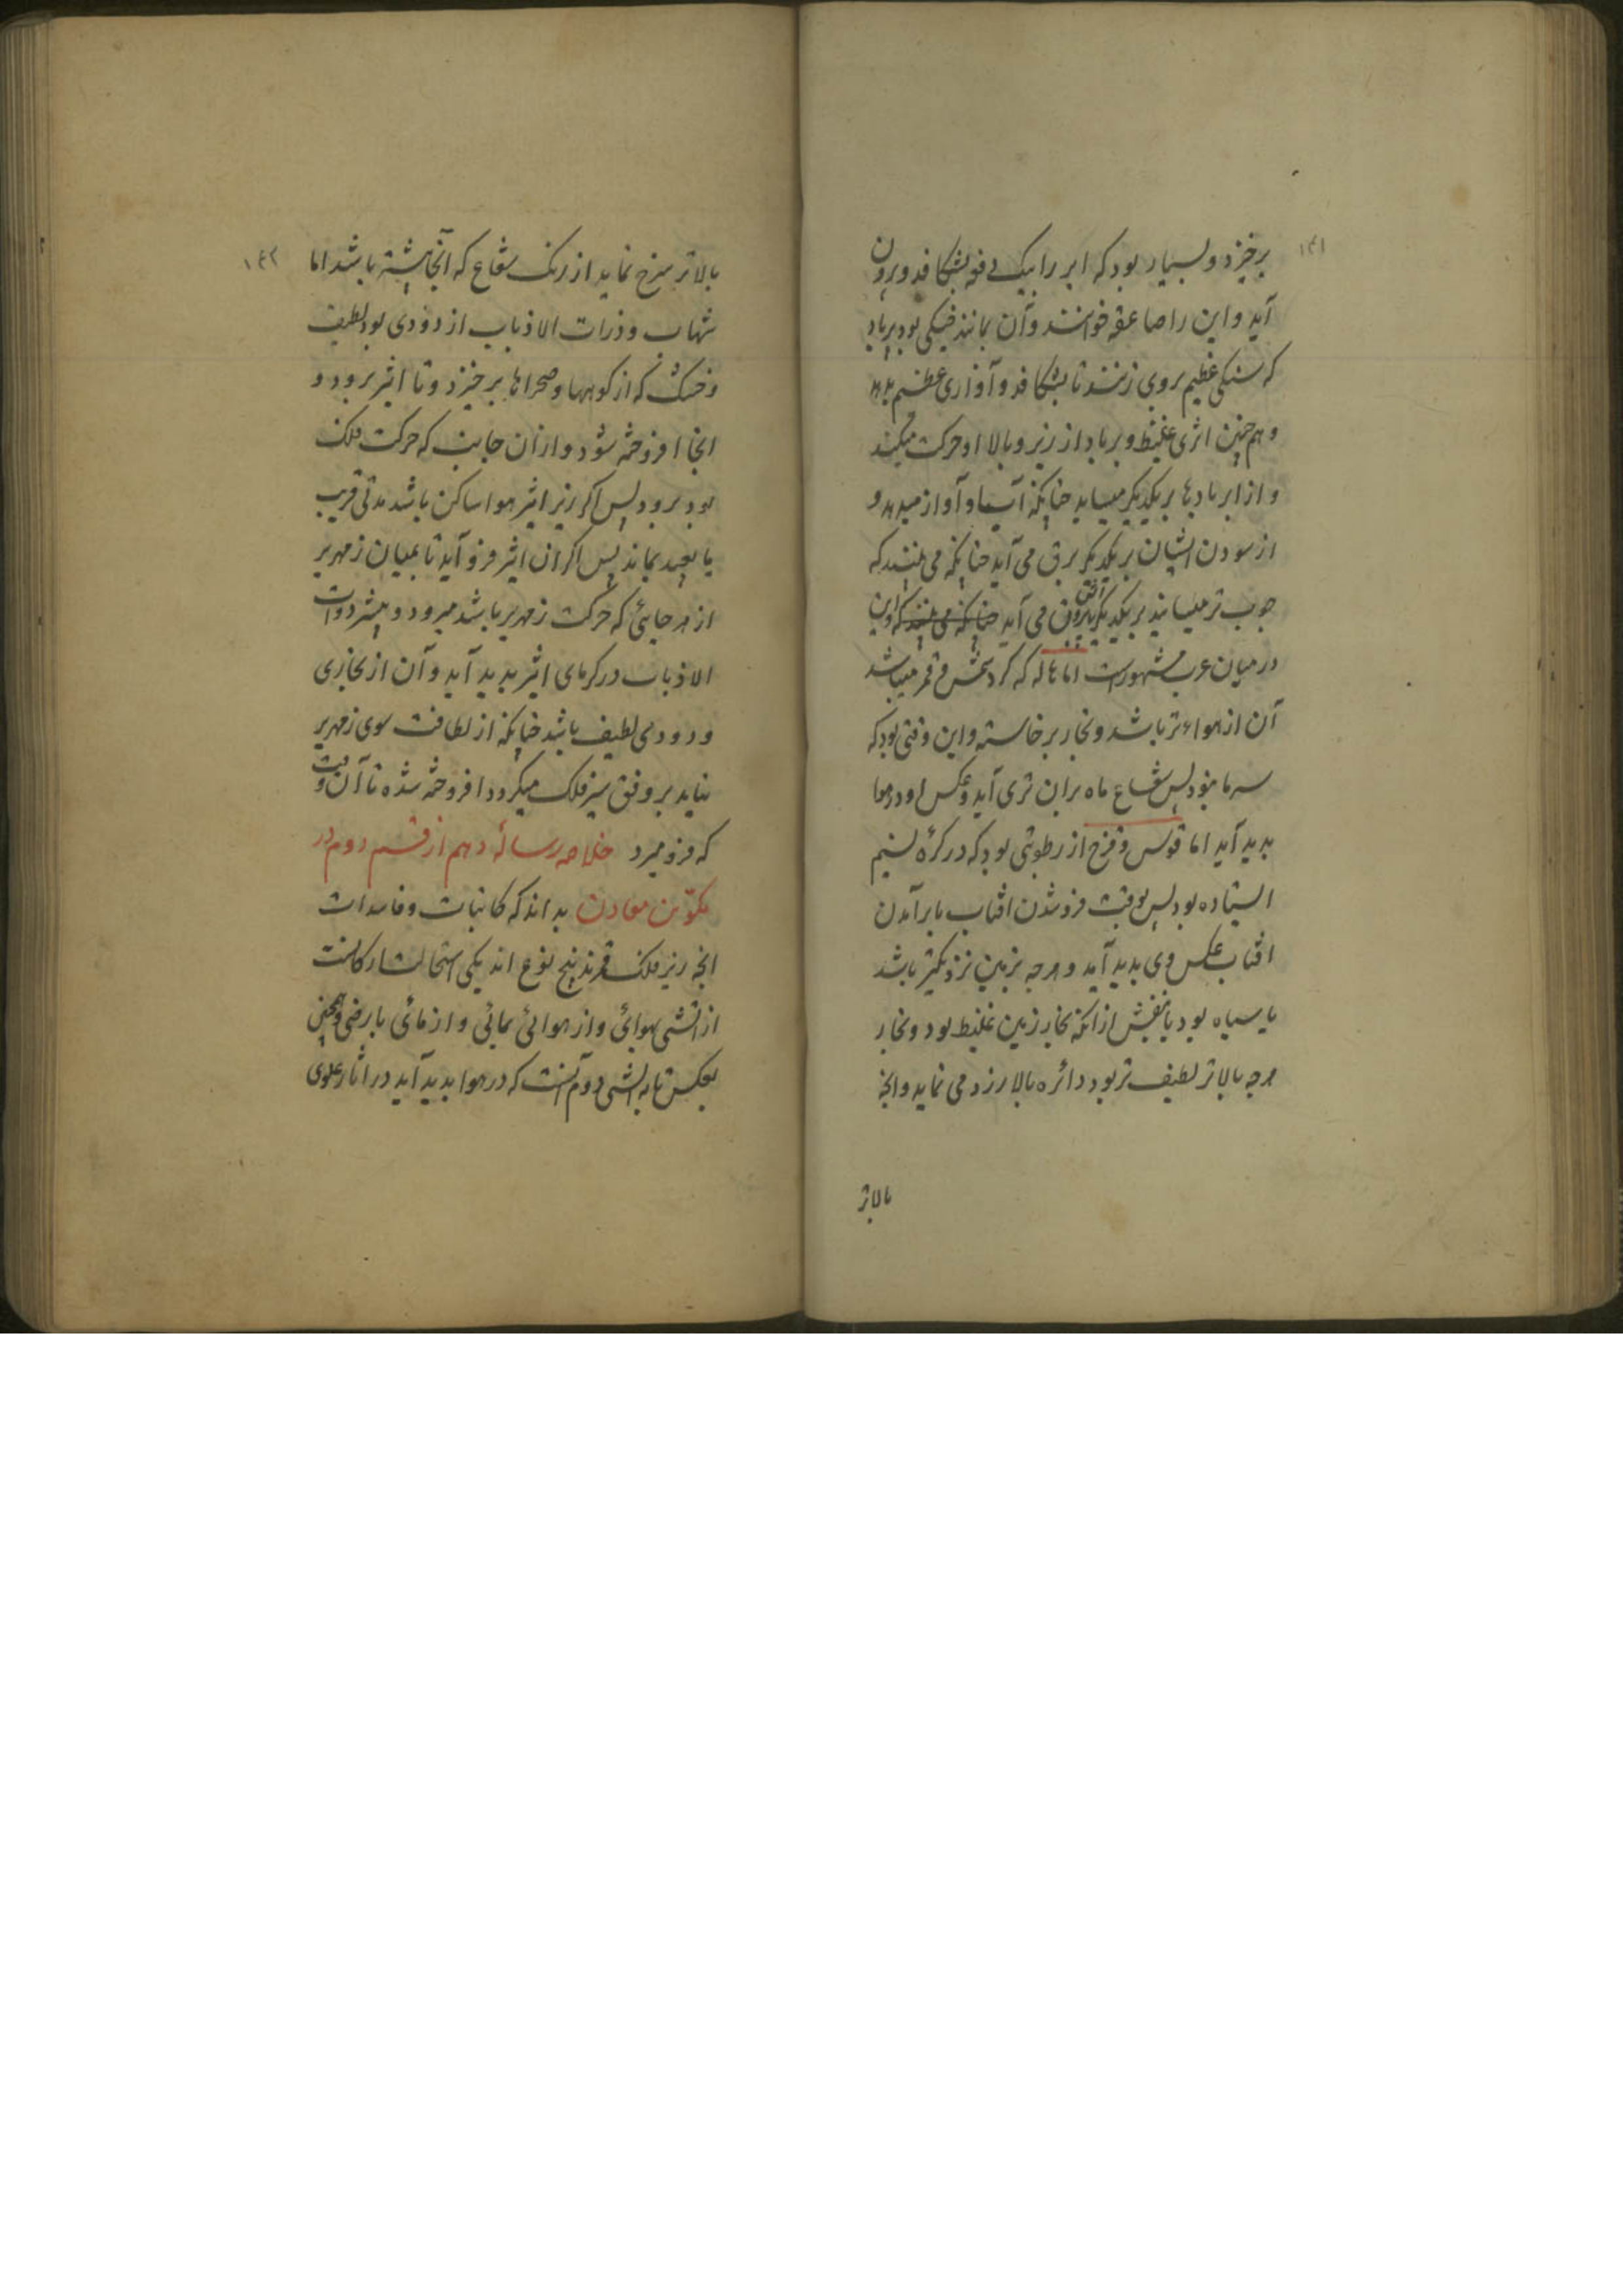 ١٤١
برخیزد و بسیار بود که ابر را بیک دفعه بشکافد و برون
آید و این را صاعقه خوانند و آن مانند خیکی بود پرباد
که سنکی عظیم بروی زنند تا بشکافد و آوازی عظیم بدهد
و هم چنین اثری غلیظ و بر باد از زیر و بالا او حرکت میکند
و از ابر بادها بر یکدیکر میساید چنانکه آسیا و آواز میدهد و
از سودن ایشان بر یکدیکر برق می آید چنانکه می بینند که
چوب تر میسایند بر یکدیکر آتش بیرون می آید چنانکه می بینند که و این
در میان عرب مشهورست اما هاله که کرد شمس و قمر میباشد
آن از هواء تر باشد و بخار برخاسته و این وقتی بود که
سرما بود پس شعاع ماه بران تری آید و عکس او در هوا
بدید آید اما قوس و قزح از رطوبتی بود که در کرهٔ نسیم
ایستاده بود پس بوقت فروشدن افتاب یا برآمدن
افتاب عکس وی بدید آید و هرچه بزمین نزدیکتر باشد
یا سیاه بود یا بنفش از انکه بخار زمین غلیظ بود و بخار
هرچه بالاتر لطیف تر بود دائره بالا زرد می نماید و انچه
بالاتر
١٤٢
بالاتر سرخ نماید از رنک شعاع که آنجا باشد اما
شهاب و ذوات الاذناب از دودی بود لطیف
و خشک که از کوهها و صحراها برخیزد و تا اثیر برود و
انجا افروخته شود و ازان جانب که حرکت فلک
بود برود پس اکر زیر اثیر هوا ساکن باشد مدتی قریب
یا بعید بماند پس اکر ان اثیر فرو آید تا بمیان زمهریر
از هر جائی که حرکت زمهریر باشد میرود و بیشتر ذوات
الاذناب در کرمای اثیر بدید آید و آن از بخاری
و دودی لطیف باشد چنانکه از لطافت سوی زمهریر
نیاید بر وفق سیر فلک میکردد افروخته شده تا آن وقت
که فرو میرد خلاصه رسالهٔ دهم از قسم دوم در
تکوّن معادن بدانند که کائنات و فاسدات
انچه زیر فلک قمرند پنج نوع اند یکی استحالت ارکانست
از اتشی بهوائی و از هوائی بمائی و از مائی بارضی و همچنین
بعکس تا به اتشی دوم آنست که در هوا بدید آید در اثار علوی